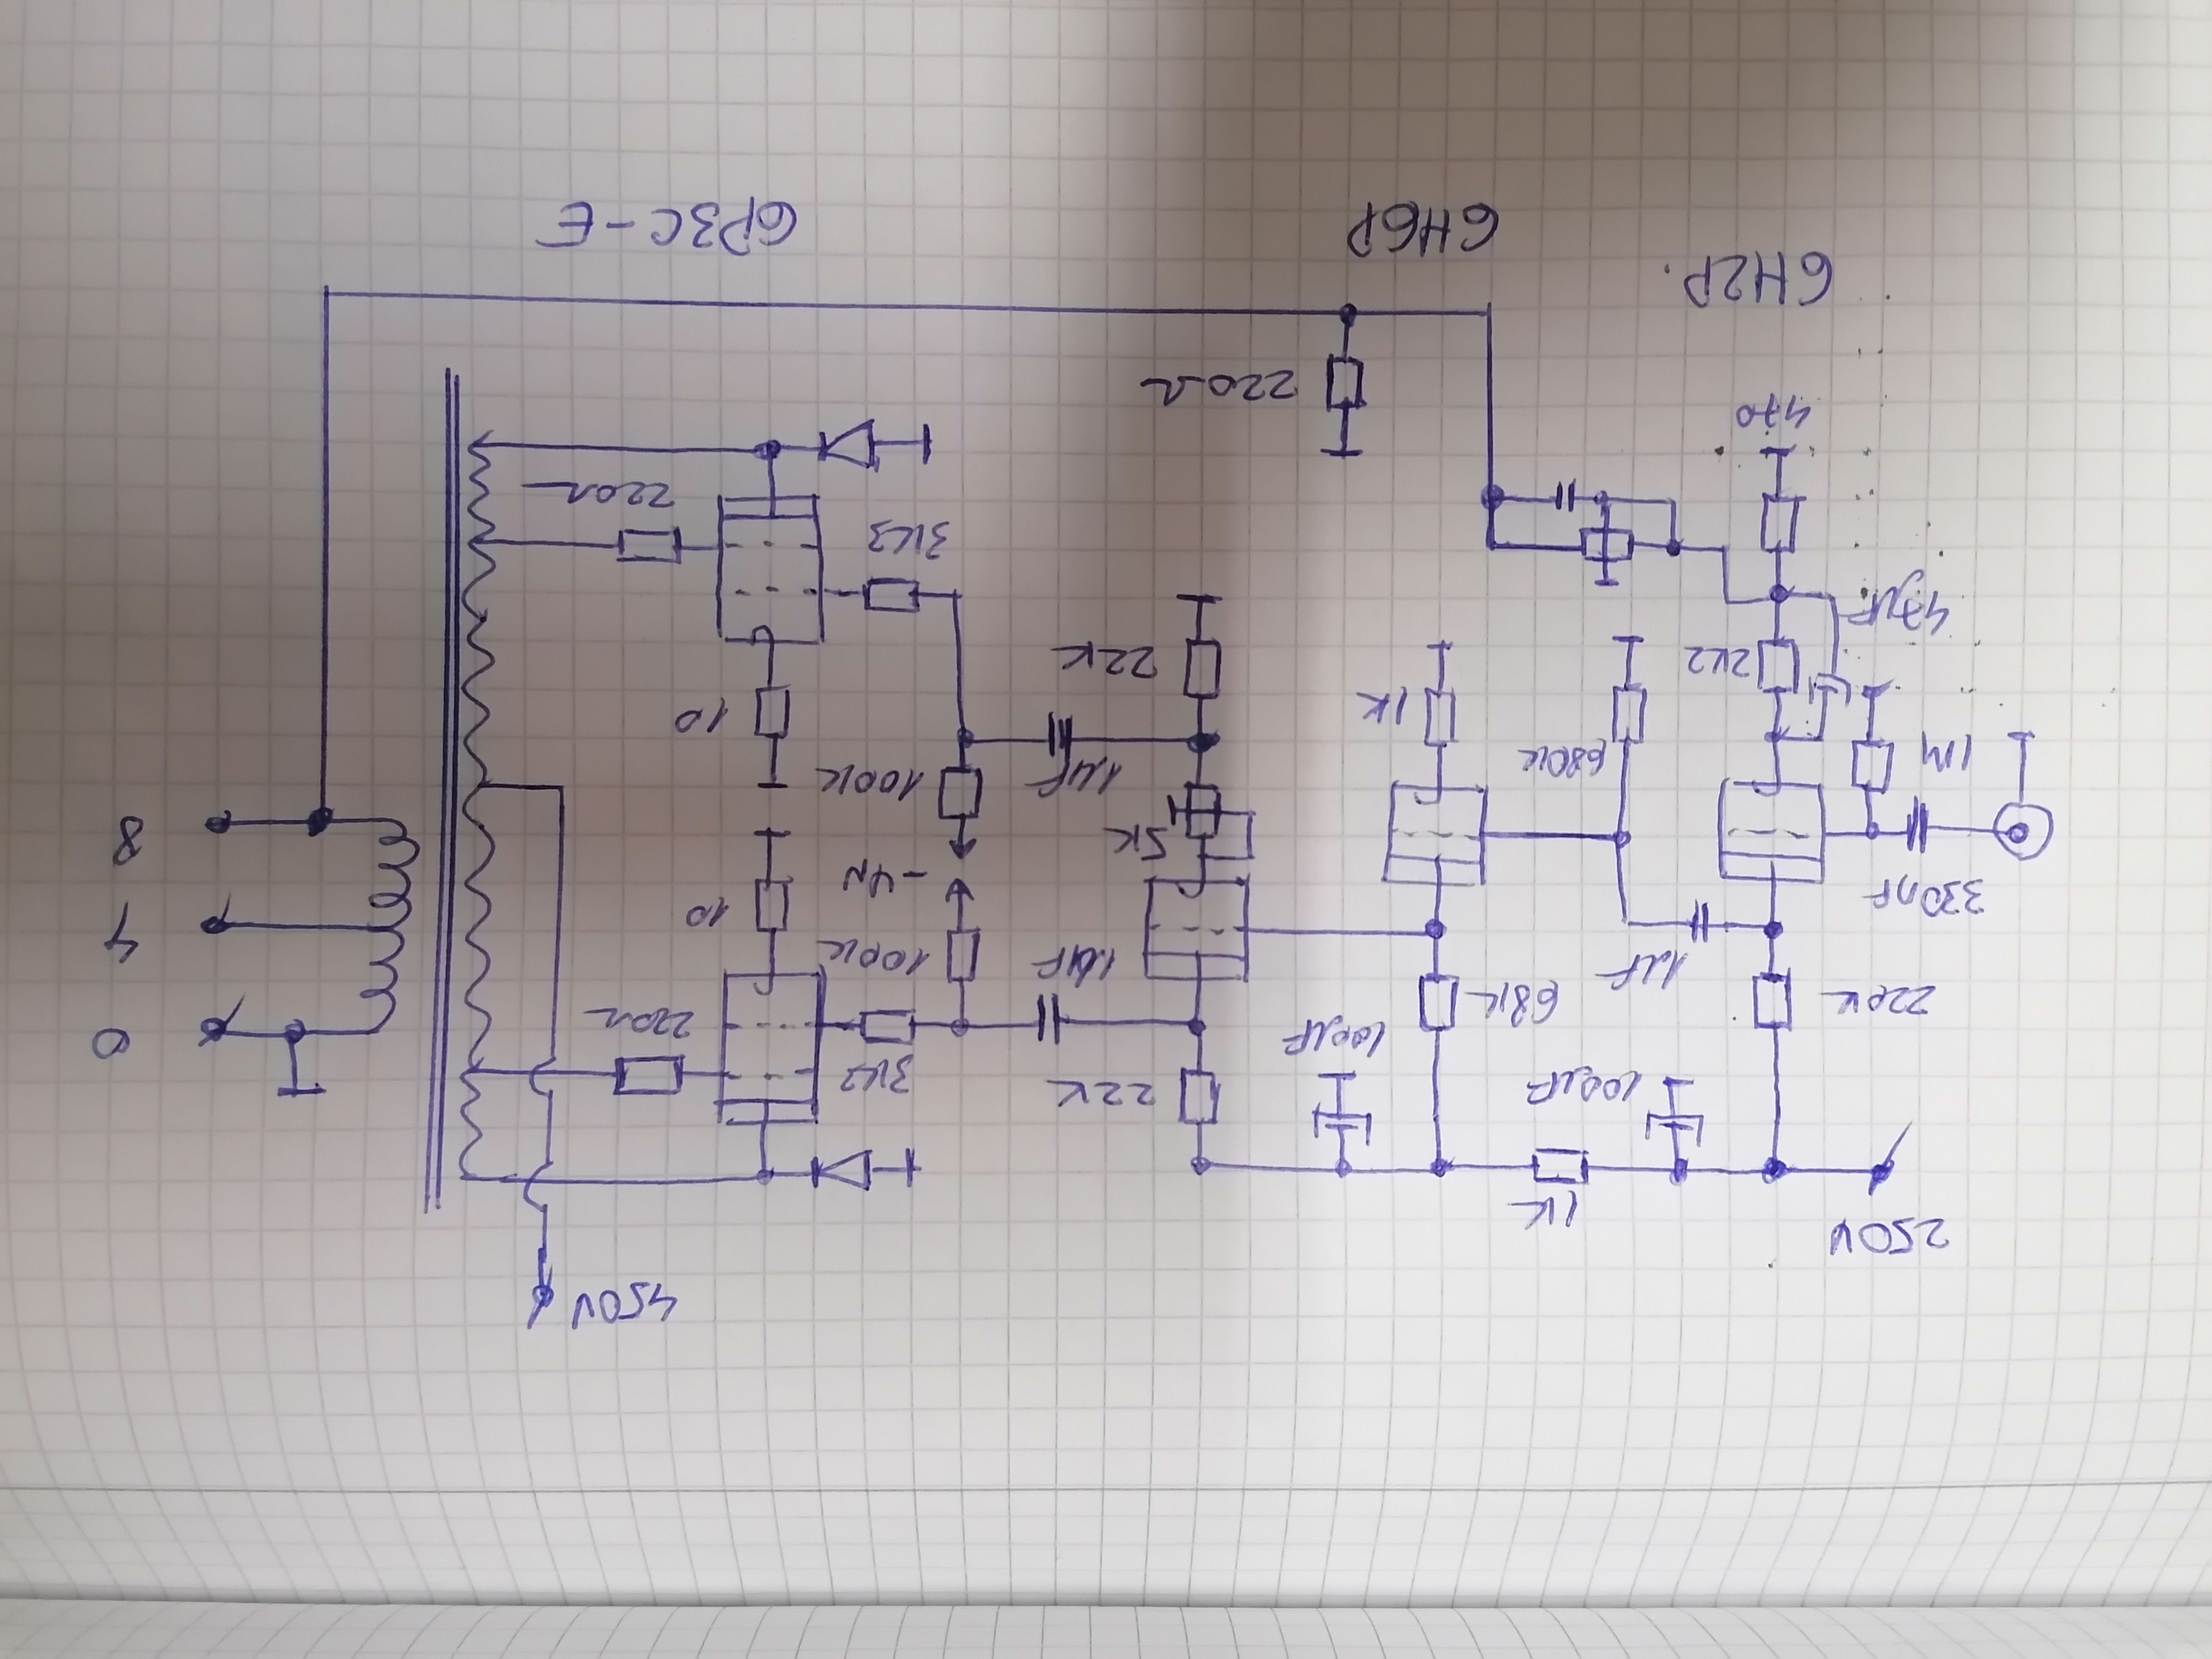 450V
250V
1K
100µF
100µF
22K
3K3
220Ω
0
220K
1µF
68K
1µF
100K
10
4
330nF
5K
8
1M
680K
1K
1µF
100K
10
2K2
22K
47µF
3K3
220Ω
470
220Ω
6H2P.
6H6P
6P3C-E